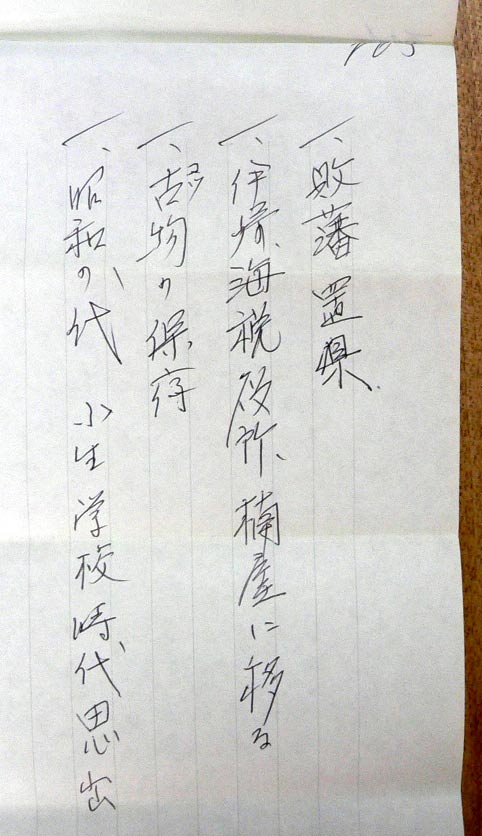 一、敗藩置県
一、伊崎海税役所、楠屋に移る
一、古物の保存
一、昭和の代 小生学校時代思出